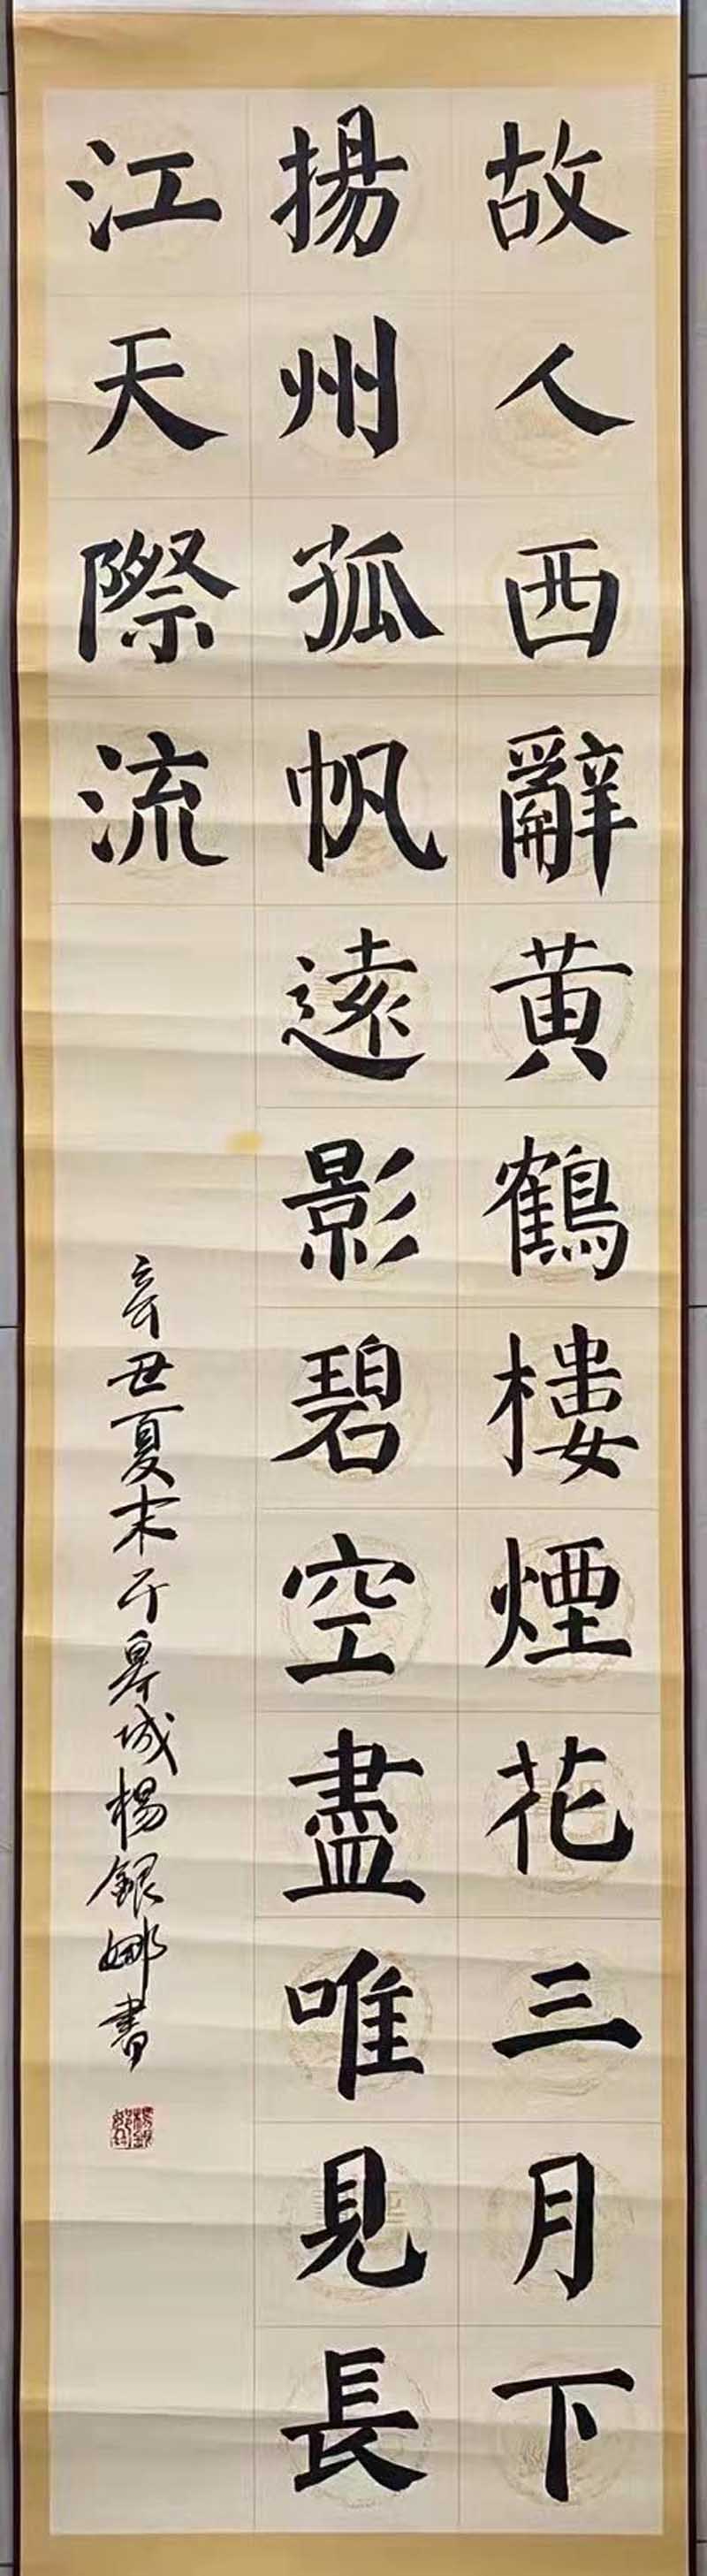 故人西辭黄鶴樓煙花三月下
揚州孤帆遠影碧空盡唯見長
江天際流
辛丑夏末于皋城楊銀娜書